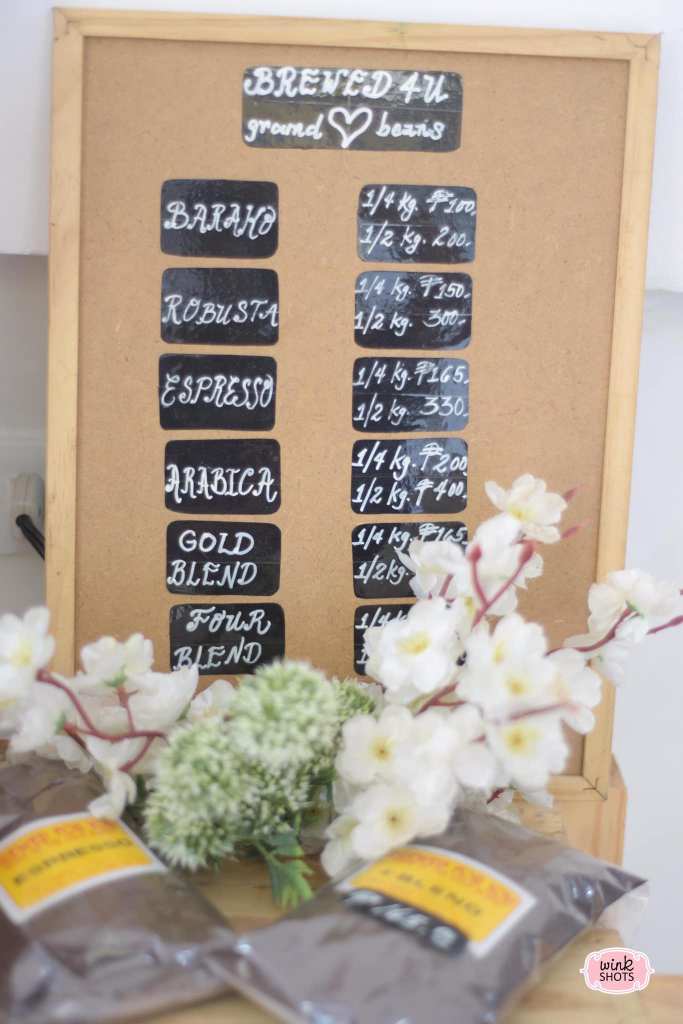 BREWED 4U
grand beans
BARAKO
1/4 kg. ₱100
1/2 kg. 200.
ROBUSTA
1/4 kg. ₱150.
1/2 kg. 300.
ESPRESSO
1/4 kg. ₱165.
1/2 kg. 330.
ARABICA
1/4 kg. ₱200
1/2 kg. ₱400
GOLD
BLEND
1/4 kg. ₱165
1/2 kg.
FOUR
BLEND
1/4
ESPRESSO
wink
SHOTS